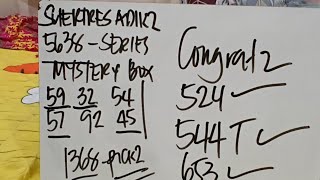 SWERTRES ADIK2
5638-SERIES
MYSTERY BOX
59 32 54
57 92 45
1368-pick2
Congrat2
524
544T
653